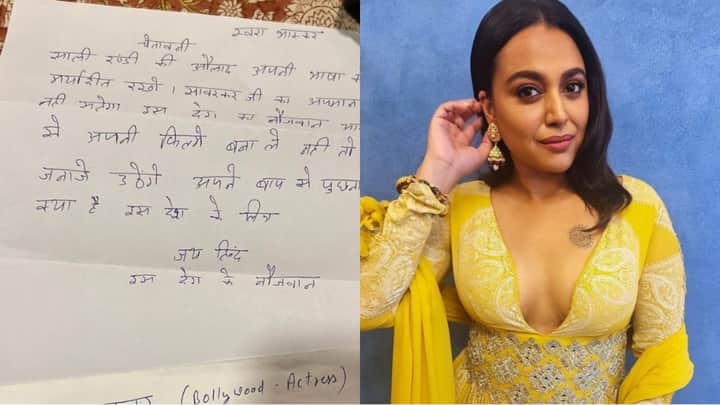 स्वरा भास्कर
चेतावनी
साली रण्डी की औलाद अपनी भाषा
मर्यादीत रखो । सावरकर जी का अपमान
नही सहेगा इस देश का नौजवान
से अपनी फिल्मे बना ले नही तो
जनाजे उठेगे अपने बाप से पुछना
क्या है इस देश के
जय हिंद
इस देश के नौजवान
(Bollywood - Actress)